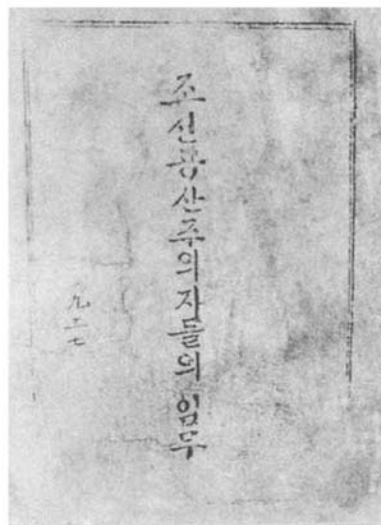 조선공산주의자들의임무
九三七